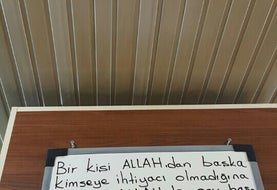 Bir kişi ALLAH.dan başka
kimseye ihtiyacı olmadığına